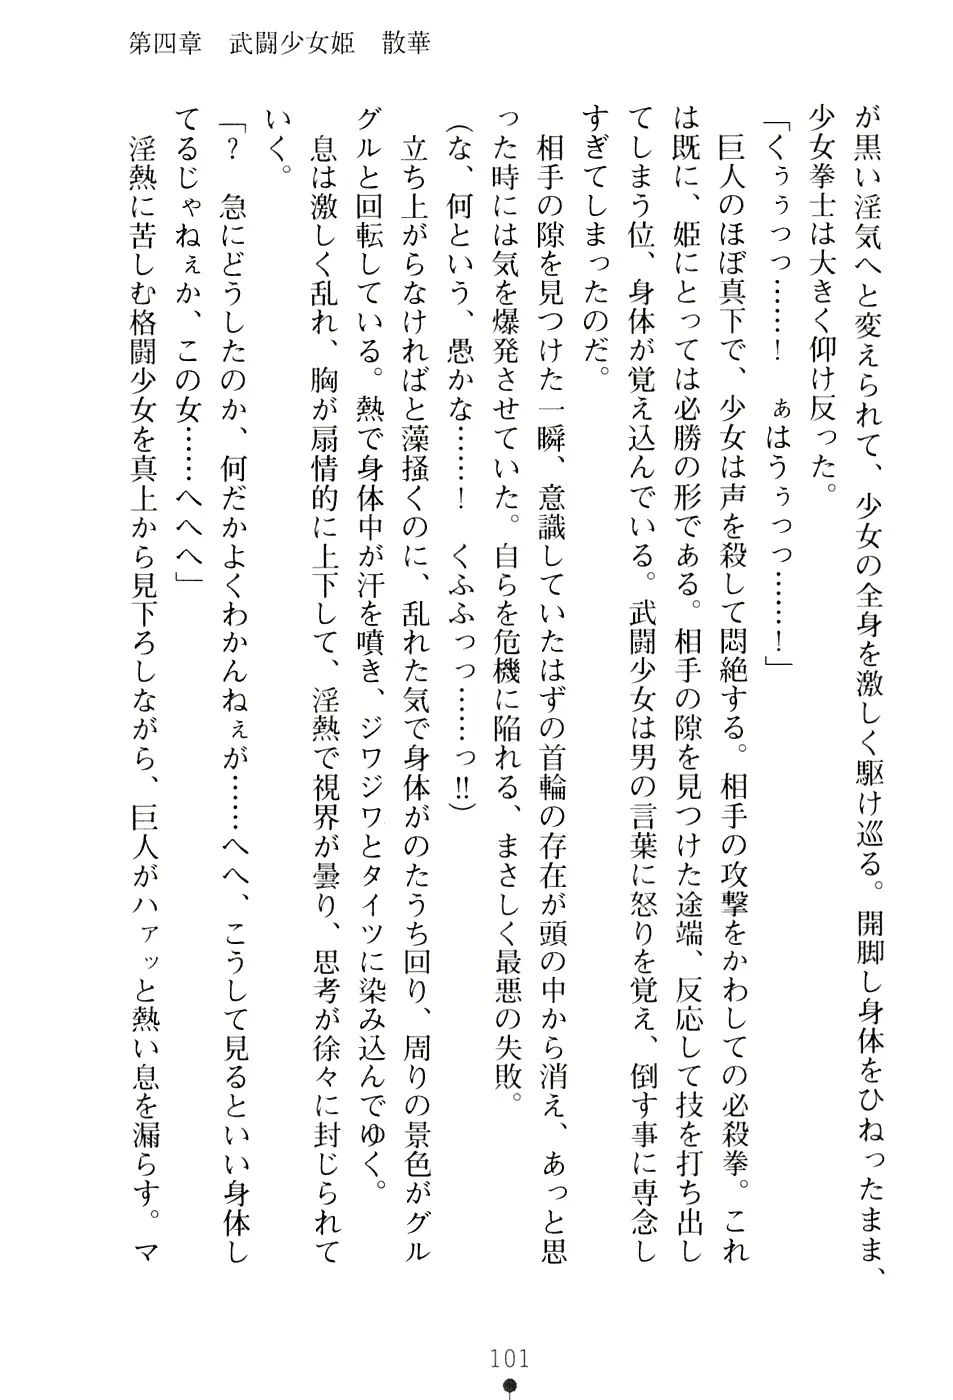 第四章　武闘少女姫　散華
が黒い淫気へと変えられて、少女の全身を激しく駆け巡る。開脚し身体をひねったまま、
少女拳士は大きく仰け反った。
「くぅぅっっ……！　ぁはうぅっっ……！」
巨人のほぼ真下で、少女は声を殺して悶絶する。相手の攻撃をかわしての必殺拳。これ
は既に、姫にとっては必勝の形である。相手の隙を見つけた途端、反応して技を打ち出し
てしまう位、身体が覚え込んでいる。武闘少女は男の言葉に怒りを覚え、倒す事に専念し
すぎてしまったのだ。
相手の隙を見つけた一瞬、意識していたはずの首輪の存在が頭の中から消え、あっと思
った時には気を爆発させていた。自らを危機に陥れる、まさしく最悪の失敗。
（な、何という、愚かな……！　くふふっっ……っ!!）
立ち上がらなければと藻掻くのに、乱れた気で身体がのたうち回り、周りの景色がグル
グルと回転している。熱で身体中が汗を噴き、ジワジワとタイツに染み込んでゆく。
息は激しく乱れ、胸が扇情的に上下して、淫熱で視界が曇り、思考が徐々に封じられて
いく。
「？　急にどうしたのか、何だかよくわかんねぇが……へへ、こうして見るといい身体し
てるじゃねぇか、この女……へへへ」
淫熱に苦しむ格闘少女を真上から見下ろしながら、巨人がハァッと熱い息を漏らす。マ
101